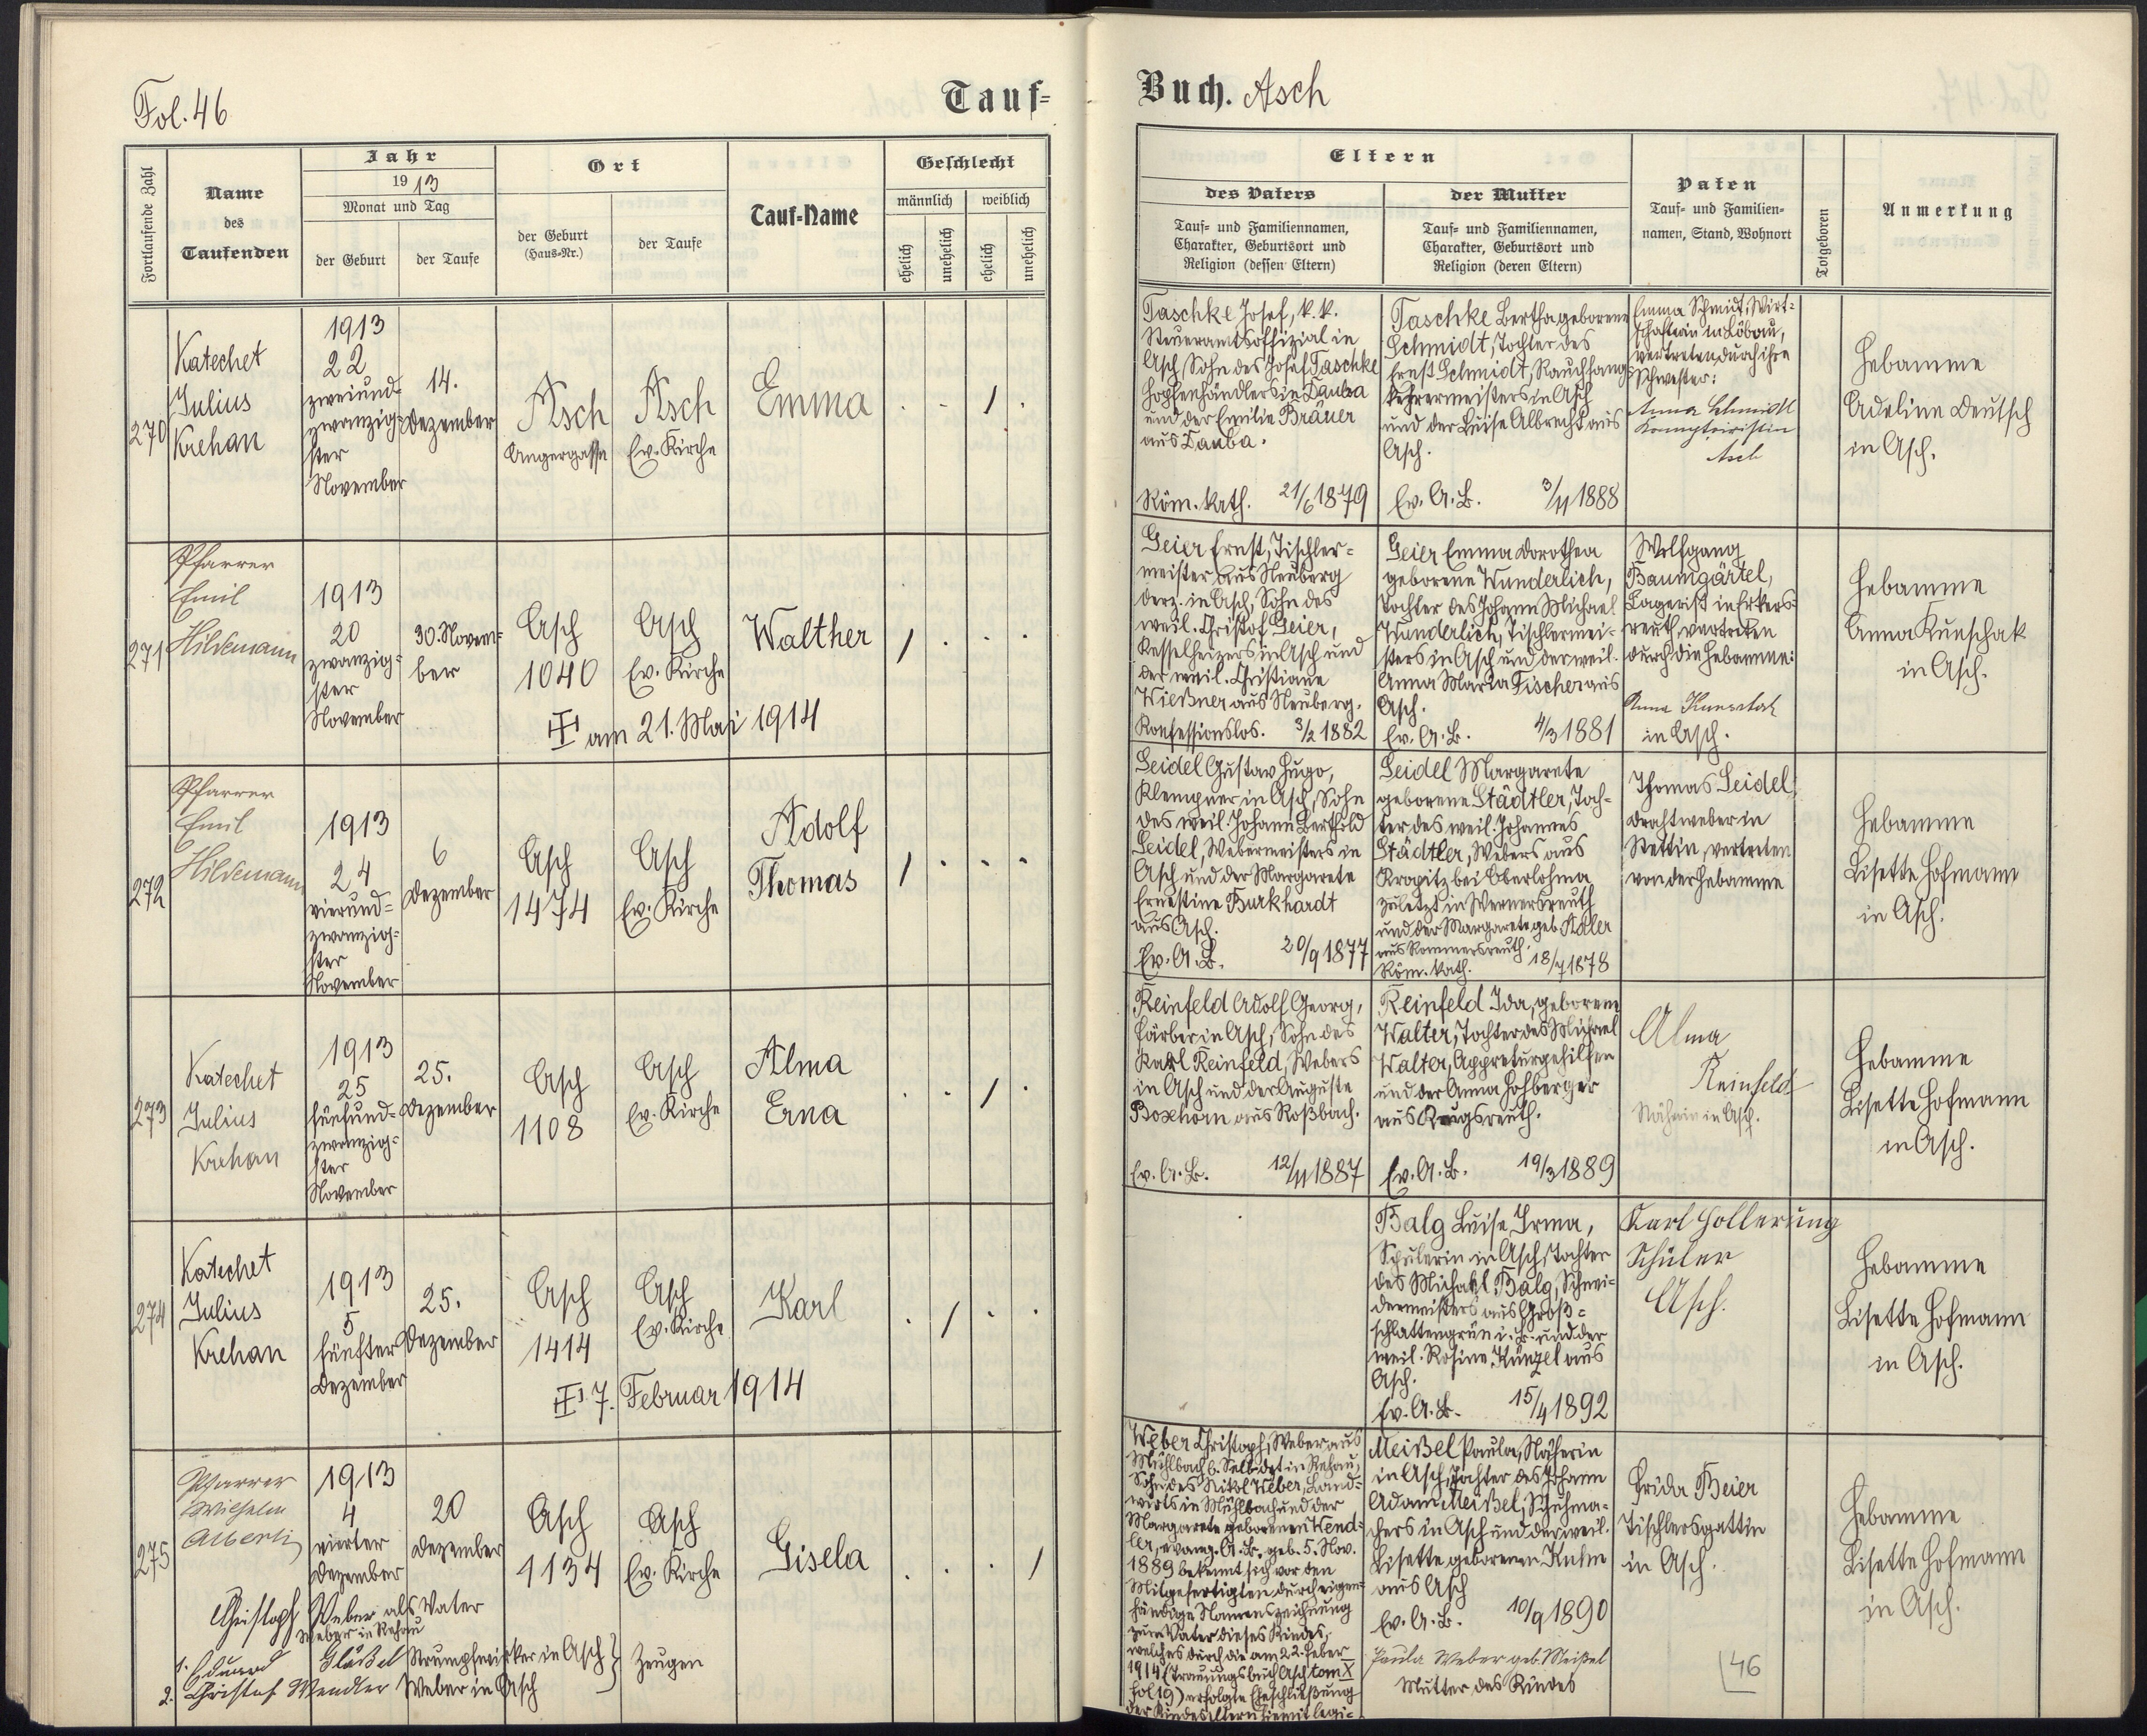 Fol. 46
Tauf=
Fortlaufende Zahl
Name
des
Taufenden
Jahr
1913
Monat und Tag
der Geburt
der Taufe
Ort
der Geburt
(Haus-Nr.)
der Taufe
Tauf-Name
Geschlecht
männlich
weiblich
ehelich
unehelich
ehelich
unehelich
270
Katechet
Julius
Krehan
1913
22
zweiund-
zwanzig-
ster
November
14.
Dezember
Asch
Angergasse
Asch
Ev. Kirche
Emma
271
Pfarrer
Emil
Hildemann
1913
20
zwanzig-
ster
November
30. Novem-
ber
Asch
1040
Asch
Ev. Kirche
Walther
am 21. Mai 1914
272
Pfarrer
Emil
Hildemann
1913
24
vierund-
zwanzig-
ster
November
6
Dezember
Asch
1474
Asch
Ev. Kirche
Adolf
Thomas
273
Katechet
Julius
Krehan
1913
25
fünfund-
zwanzig-
ster
November
25.
Dezember
Asch
1108
Asch
Ev. Kirche
Alma
Erna
274
Katechet
Julius
Krehan
1913
5
fünfter
Dezember
25.
Dezember
Asch
1414
Asch
Ev. Kirche
Karl
7. Februar 1914
275
Pfarrer
Wilhelm
Alberti
1913
4
vierter
Dezember
20
Dezember
Asch
1134
Asch
Ev. Kirche
Gisela
Christoph Weber als Vater
Weber in Rehau
1. Eduard Gläßel Strumpfwirker in Asch } Zeugen
2. Christof Wendler Weber in Asch
Buch. Asch
Eltern
des Vaters
Tauf- und Familiennamen,
Charakter, Geburtsort und
Religion (dessen Eltern)
der Mutter
Tauf- und Familiennamen,
Charakter, Geburtsort und
Religion (deren Eltern)
Paten
Tauf- und Familien-
namen, Stand, Wohnort
Totgeboren
Anmerkung
Taschke Josef, k. k.
Steueramtsoffizial in
Asch, Sohn des Josef Taschke
Hopfenhändlers in Dauba
und der Emilie Bräuer
aus Dauba.
Röm. kath. 21/6 1879
Taschke Bertha geborene
Schmidt, Tochter des
Ernst Schmidt, Rauchfang-
kehrermeisters in Asch
und der Luise Albrecht aus
Asch.
Ev. A. B. 3/11 1888
Emma Schmidt, Wirt-
schafterin in Löbau,
vertreten durch ihre
Schwester:
Anna Schmidt
Kontoristin
Asch
Hebamme
Adeline Deutsch
in Asch.
Geier Ernst, Tischler-
meister aus Neuberg
derz. in Asch, Sohn des
weil. Christof Geier,
Kesselheizers in Asch und
der weil. Christiane
Wießner aus Neuberg.
Konfessionslos. 3/2 1882
Geier Emma Dorothea
geborene Wunderlich,
Tochter des Johann Michael
Wunderlich, Tischlermei-
sters in Asch und der weil.
Anna Maria Fischer aus
Asch.
Ev. A. B. 4/3 1881
Wolfgang
Baumgärtel,
Lagerist in Erkers-
reuth, vertreten
durch die Hebamme:
Anna Kunschak
in Asch.
Hebamme
Anna Kunschak
in Asch.
Seidel Gustav Hugo,
Klempner in Asch, Sohn
des weil. Johann Berthold
Seidel, Webermeisters in
Asch und der Margarete
Ernestine Burkhardt
aus Asch.
Ev. A. B. 20/9 1877
Seidel Margarete
geborene Städtler, Toch-
ter des weil. Johannes
Städtler, Webers aus
Kropitz bei Oberlohma
zuletzt in Wernersreuth
und der Margarete geb. Adler
aus Rommersreuth.
Röm. kath. 18/7 1878
Thomas Seidel,
Drahtweber in
Stettin, vertreten
von der Hebamme
Hebamme
Lisette Hofmann
in Asch.
Reinfeld Adolf Georg,
Färber in Asch, Sohn des
Karl Reinfeld, Webers
in Asch und der Auguste
Boxhorn aus Roßbach.
Ev. A. B. 12/11 1887
Reinfeld Ida, geborene
Walter, Tochter des Michael
Walter, Appreturgehilfen
und der Anna Hohberger
aus Krugsreuth.
Ev. A. B. 19/3 1889
Alma
Reinfeld
Näherin in Asch.
Hebamme
Lisette Hofmann
in Asch.
Balg Luise Irma,
Spulerin in Asch, Tochter
des Michael Balg, Schnei-
dermeisters aus Groß-
schlattengrün i. B. und der
weil. Rosine Künzel aus
Asch.
Ev. A. B. 15/4 1892
Karl Hollerung
Schüler
Asch.
Hebamme
Lisette Hofmann
in Asch.
Weber Christoph, Weber aus
Mühlbach b. Selb, dzt. in Rehau,
Sohn des Nikol Weber, Land-
wirts in Mühlbach und der
Margarete geborenen Wend-
ler, evang. A. B., geb. 5. Nov.
1889 bekennt sich vor den
Mitgefertigten durch eigen-
händige Namenszeichnung
zum Vater dieses Kindes,
welches durch die am 22. Feber
1914 (Trauungsbuch Asch tom X
fol 19) erfolgte Eheschließung
der Kindeseltern hiemit legi-
Meißel Paula, Näherin
in Asch, Tochter des Johann
Adam Meißel, Schuhma-
chers in Asch und der weil.
Lisette geborenen Kuhn
aus Asch
Ev. A. B. 10/9 1890
Paula Weber geb. Meißel
Mutter des Kindes
Frida Beier
Tischlersgattin
in Asch.
Hebamme
Lisette Hofmann
in Asch.
46